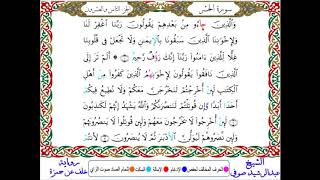 سورة الحشر الجزء الثامن والعشرون
وَالَّذِينَ جَآءُو مِنۢ بَعْدِهِمْ يَقُولُونَ رَبَّنَا ٱغْفِرْ لَنَا
وَلِإِخْوَٰنِنَا ٱلَّذِينَ سَبَقُونَا بِٱلْإِيمَٰنِ وَلَا تَجْعَلْ فِى قُلُوبِنَا
غِلًّا لِّلَّذِينَ ءَامَنُوا۟ رَبَّنَآ إِنَّكَ رَؤُفٌ رَّحِيمٌ ۝ أَلَمْ تَرَ إِلَى
ٱلَّذِينَ نَافَقُوا۟ يَقُولُونَ لِإِخْوَٰنِهِمُ ٱلَّذِينَ كَفَرُوا۟ مِنْ أَهْلِ
ٱلْكِتَٰبِ لَئِنْ أُخْرِجْتُمْ لَنَخْرُجَنَّ مَعَكُمْ وَلَا نُطِيعُ فِيكُمْ
أَحَدًا أَبَدًا وَإِن قُوتِلْتُمْ لَنَنصُرَنَّكُمْ وَٱللَّهُ يَشْهَدُ إِنَّهُمْ لَكَٰذِبُونَ
۝ لَئِنْ أُخْرِجُوا۟ لَا يَخْرُجُونَ مَعَهُمْ وَلَئِن قُوتِلُوا۟ لَا يَنصُرُونَهُمْ
وَلَئِن نَّصَرُوهُمْ لَيُوَلُّنَّ ٱلْأَدْبَٰرَ ثُمَّ لَا يُنصَرُونَ ۝ لَأَنتُمْ
الشيخ
عبدالرشيد صوفي
رواية
خلف عن حمزة